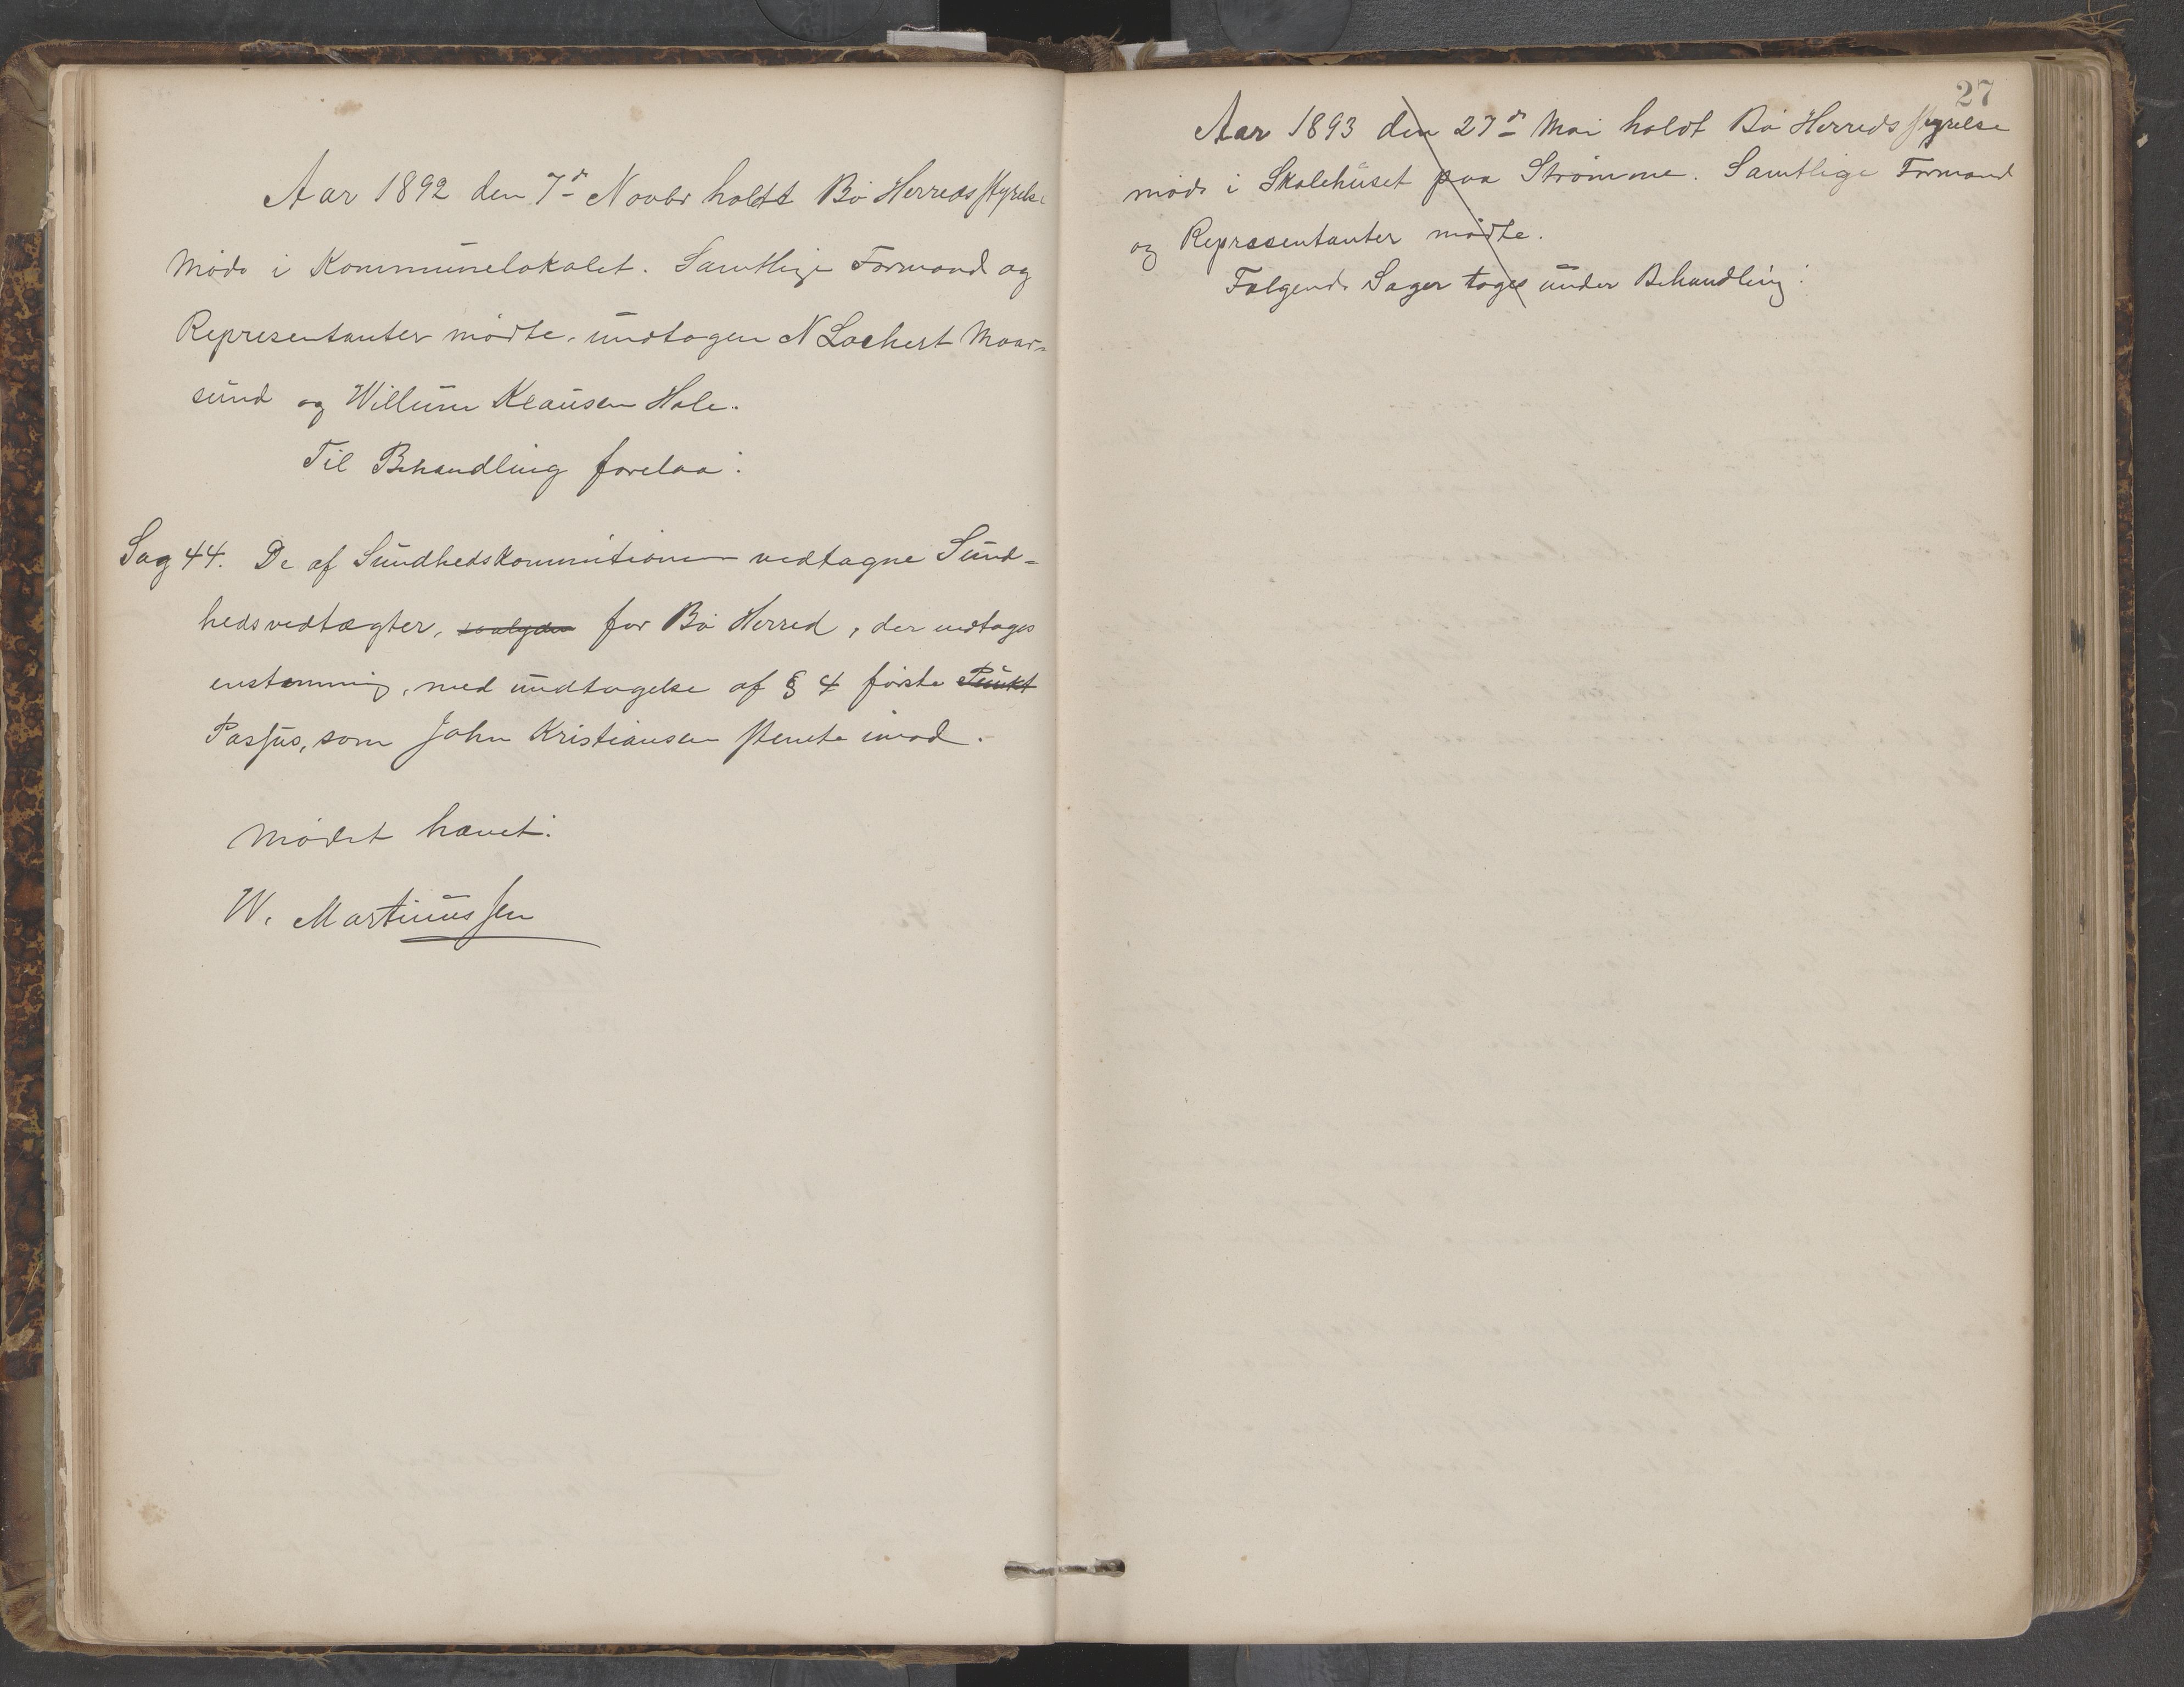 Aar 1892 den 7de Novbr holdt Bø Herredsstyrelse
Møde i Kommunelokalet. Samtlige Formænd og
Representanter mødte, undtagen N Lochert Maar-
sund og Willum Klausen Hole.
Til Behandling forelaa:
Sag 44. De af Sundhedskommitionen vedtagne Sund-
hedsvedtægter, for Bø Herred, der vedtages
enstemmig, med undtagelse af § 4 første Punkt
Passus, som John Kristiansen stemte imod.
Mødet hævet.
W. Martinussen
27
Aar 1893 den 27de Mai holdt Bø Herredsstyrelse
møde i Skolehuset paa Strømme. Samtlige Formænd
og Repræsentanter mødte.
Følgende Sager toges under Behandling: